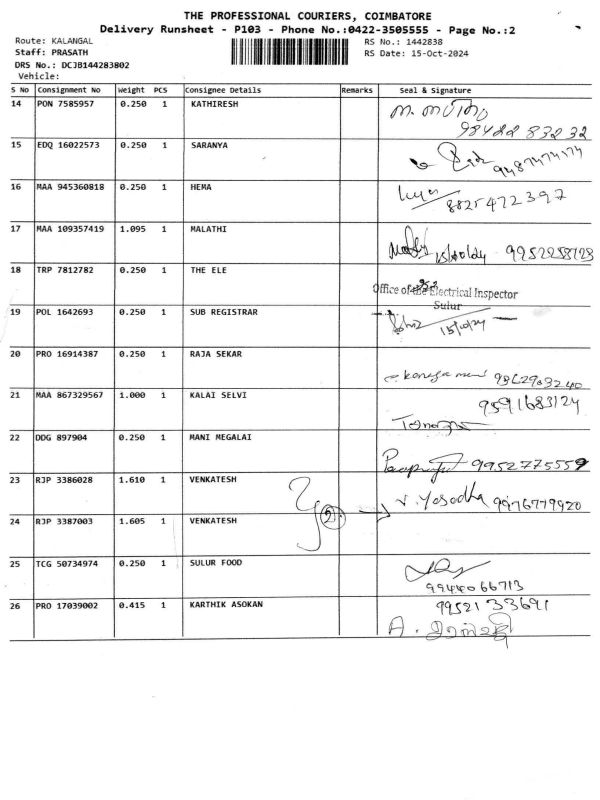 THE PROFESSIONAL COURIERS, COIMBATORE
Delivery Runsheet - P103 - Phone No.:0422-3505555 - Page No.:2
Route: KALANGAL RS No.: 1442838
Staff: PRASATH RS Date: 15-Oct-2024
DRS No.: DCJB144283802
Vehicle:
S No Consignment No Weight PCS Consignee Details Remarks Seal & Signature
14 PON 7585957 0.250 1 KATHIRESH
98422 83232
15 EDQ 16022573 0.250 1 SARANYA
9487474174
16 MAA 945360818 0.250 1 HEMA
8825472397
17 MAA 109357419 1.095 1 MALATHI
9952258728
18 TRP 7812782 0.250 1 THE ELE
Office of the Electrical Inspector
Sulur
19 POL 1642693 0.250 1 SUB REGISTRAR
15/10/24
20 PRO 16914387 0.250 1 RAJA SEKAR
21 MAA 867329567 1.000 1 KALAI SELVI
9591683124
22 DDG 897904 0.250 1 MANI MEGALAI
9952775559
23 RJP 3386028 1.610 1 VENKATESH
2 V. Yasodha 9976779920
24 RJP 3387003 1.605 1 VENKATESH
25 TCG 50734974 0.250 1 SULUR FOOD
9944066713
26 PRO 17039002 0.415 1 KARTHIK ASOKAN
9952133691